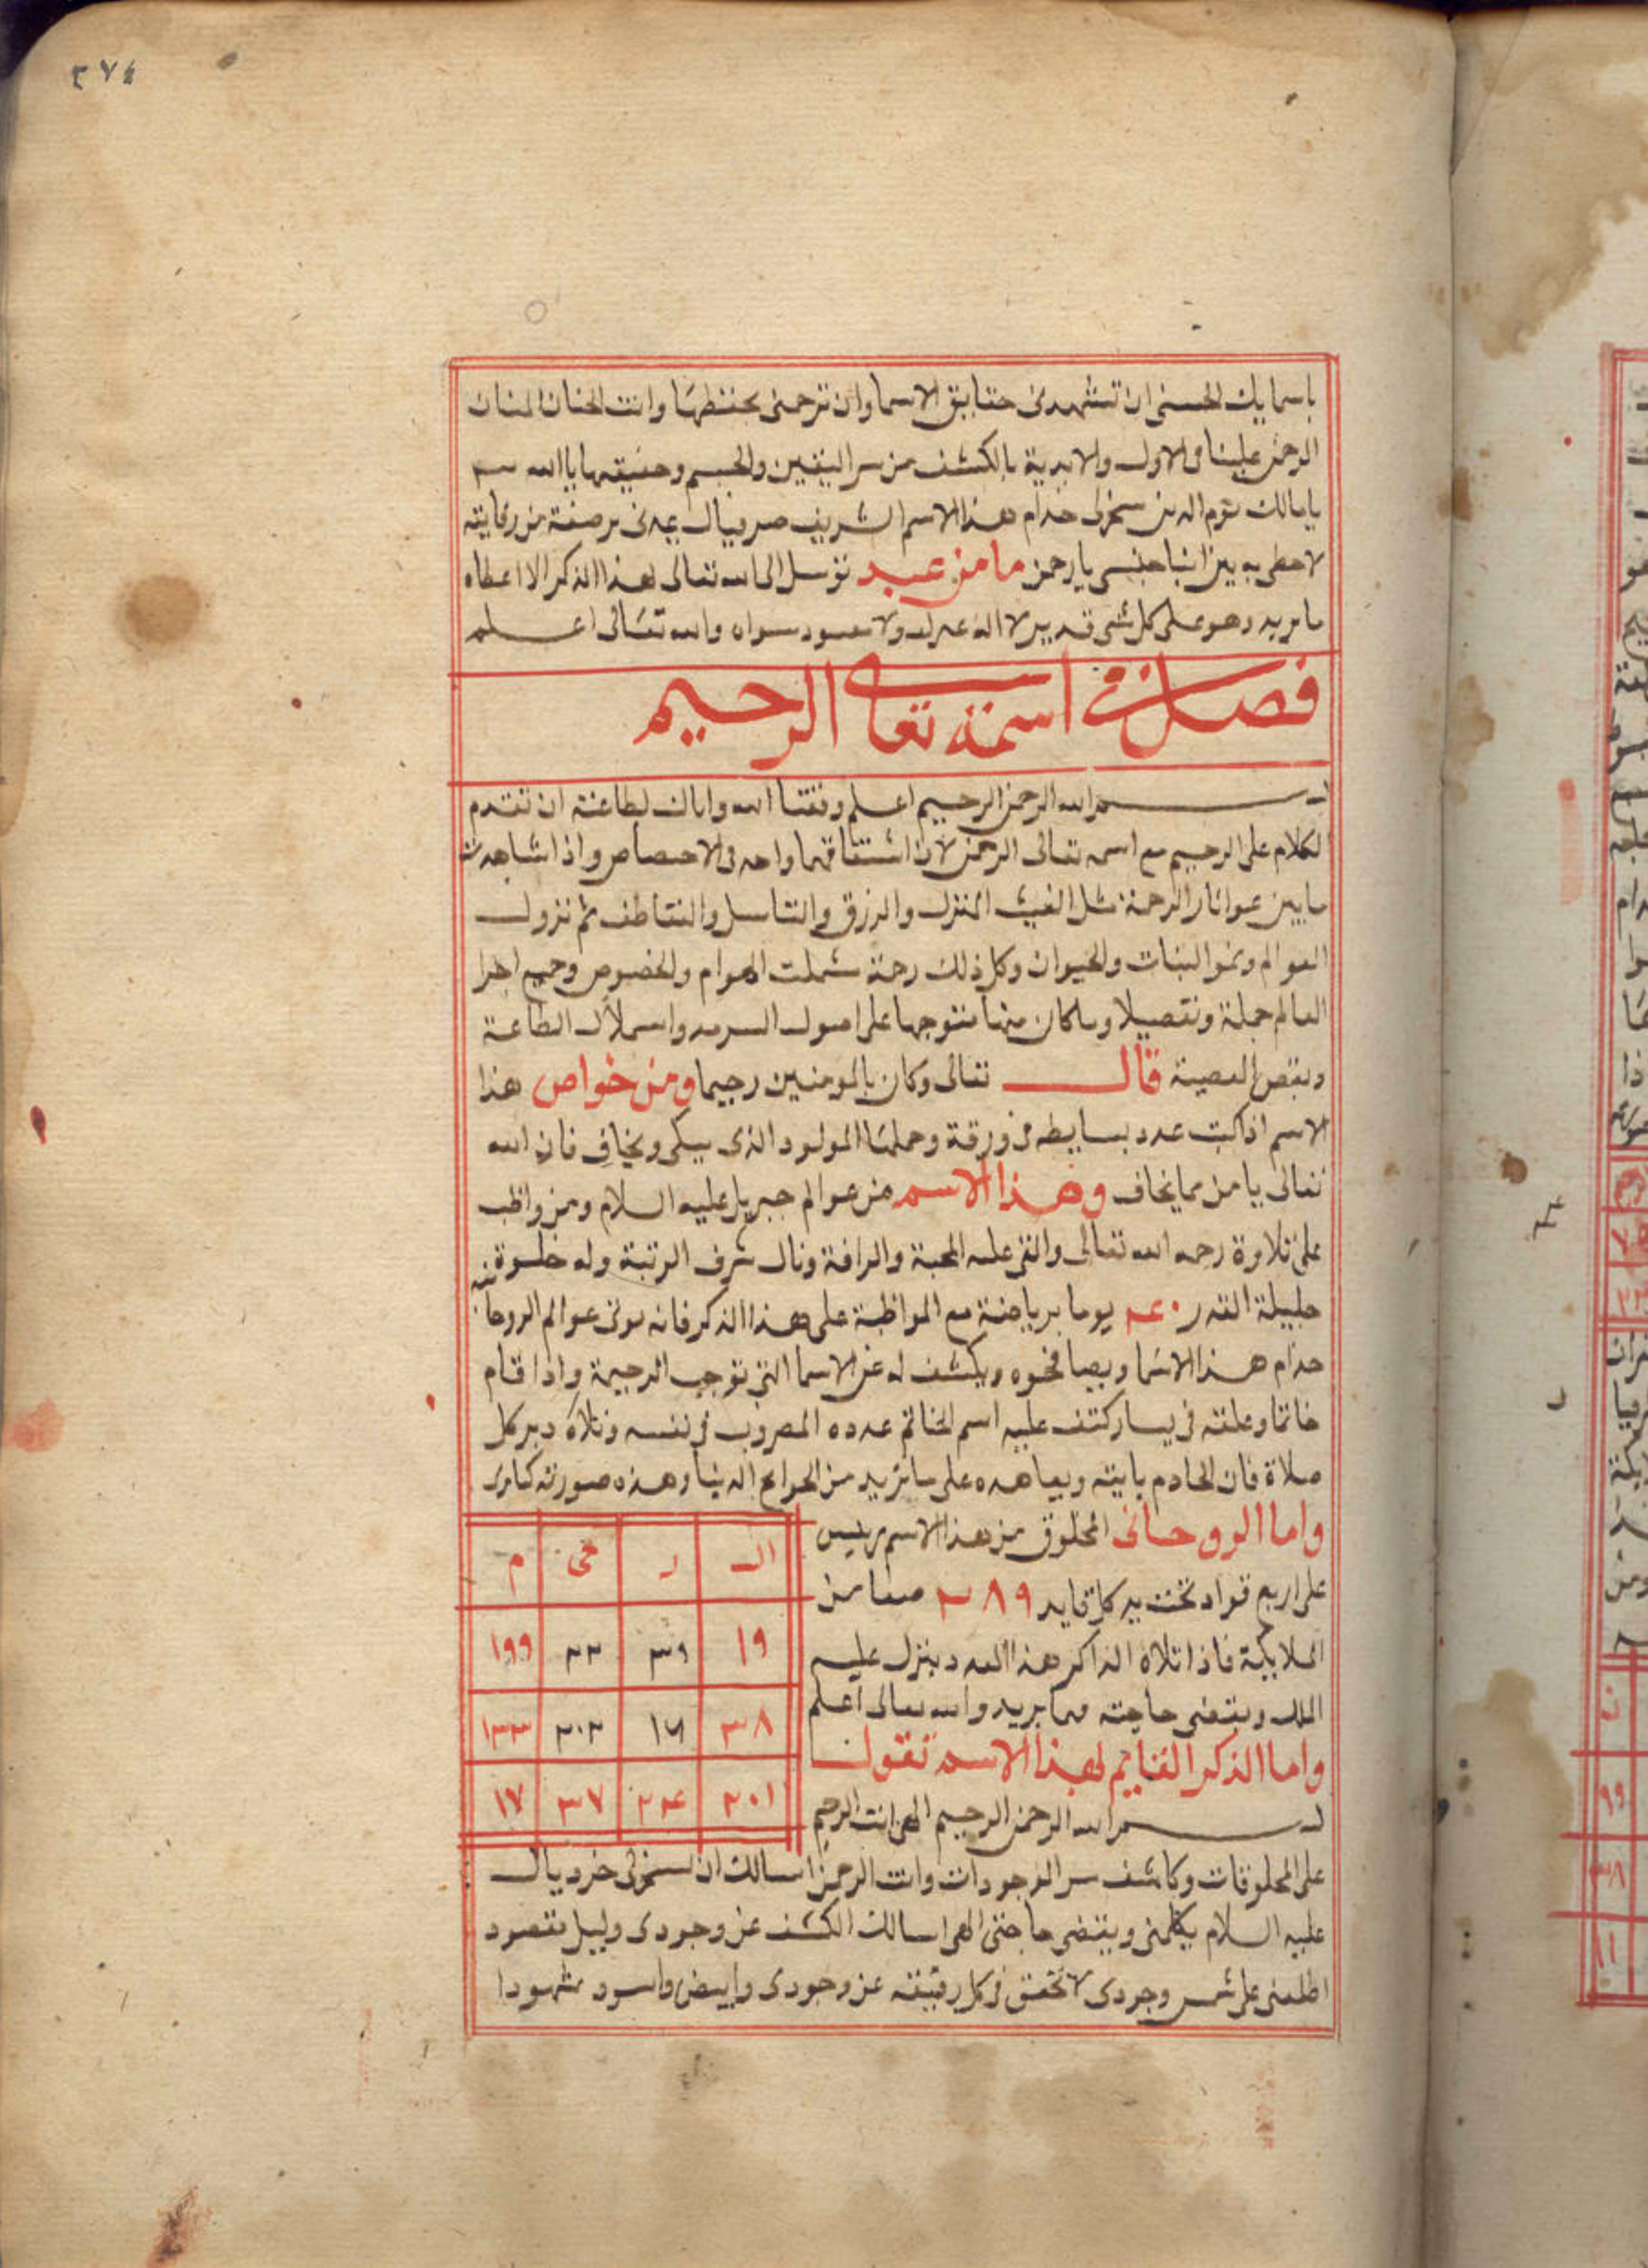 ٢٧٤
باسمايك الحسنى ان تشهدنى حقايق الاسما وان ترحمنى بحنطها وانت الحنان المنان
الرحمن علينا فى الاول والابدية بالكشف من سر اليقين والجسم وحقيقها يا الله
يامالك يوم الدين سخرلى خدام هذا الاسم الشريف صرفيال يمدنى برصفة من رقايته
لاحظى به بين ابنا جنسى يا رحمن ما من عبد توسل الى الله تعالى بهذا الذكر الا اعطاه
ما يريد وهو على كل شى قدير لا اله غيره ولا معبود سواه والله تعالى اعلم
فصل فى اسمه تعالى الرحيم
بسم الله الرحمن الرحيم اعلم وفقنا الله واياك لطاعته ان تقدم
الكلام على الرحيم مع اسمه تعالى الرحمن لان اشتقاقهما واحد فى الاختصاص واذا شاهدت
مابين عواثار الرحمة مثل الغيث المنزل والرزق والتناسل والتعاطف ثم نزول
العوالم ونموا النبات والحيوان وكل ذلك رحمة شملت العوام والخصوص وجميع اجرا
العالم جملة وتفصيلا وماكان منها متوجها على اصول السرمد واسملاك الطاعة
ونقص المعصية قال تعالى وكان بالمومنين رحيما ومن خواص هذا
الاسم اذا كتب عدد بسايطه فى ورقة وحملها المولود الذى يبكى ويخاف فان الله
تعالى يامن مما يخاف وهذا الاسم من عوالم جبريل عليه السلام ومن واظب
على تلاوة رحمه الله تعالى والقى عليه المحبة والرافة ونال شرف الرتبة وله خلوة
جليلة القدر ٤٠ يوما برياضة مع المواظبة على هذا الذكر فانه يوتى عوالم الروحانيه
خدام هذا الاسما ويصافحوه ويكشف له عن الاسما التى توجب الرحيمة واذا قام
خاتما وعلقته فى يسار كتف عليه اسم الخاتم عدده المضروب فى نفسه وتلاه دبر كل
صلاة فان الخادم ياتيه ويعاهده على ما تريد من الحوايج الدنيا وهذه صورته كما ترى
واما الروحانى المخلوق من هذا الاسم رييس
على اربع قواد تحت يد كل قايد ٣٨٩ صفا من
الملايكة فاذا تلاه الذاكر هذا العدد ينزل عليه
الملك ويقضى حاجته مما يريد والله تعالى اعلم
واما الذكر القايم لهذا الاسم تقول
بسم الله الرحمن الرحيم الهى انت الرحيم
الـ ر حى م
١٩ ٣٩ ٣٢ ١٩٩
٣٨ ١٦ ٢٠٢ ٣٣
٢٠١ ٣٤ ٣٧ ١٧
على المخلوقات وكاشف سر الموجودات وانت الرحمن اسالك ان تسخرلى خرديال
عليه السلام يكلمنى ويقضى حاجتى الهى اسالك الكشف عن وجودى وليل مقصود
اطلعنى على شمس وجودى لا تحقق فى كل رقيقة عن وجودى وابيض واسود مشهودا